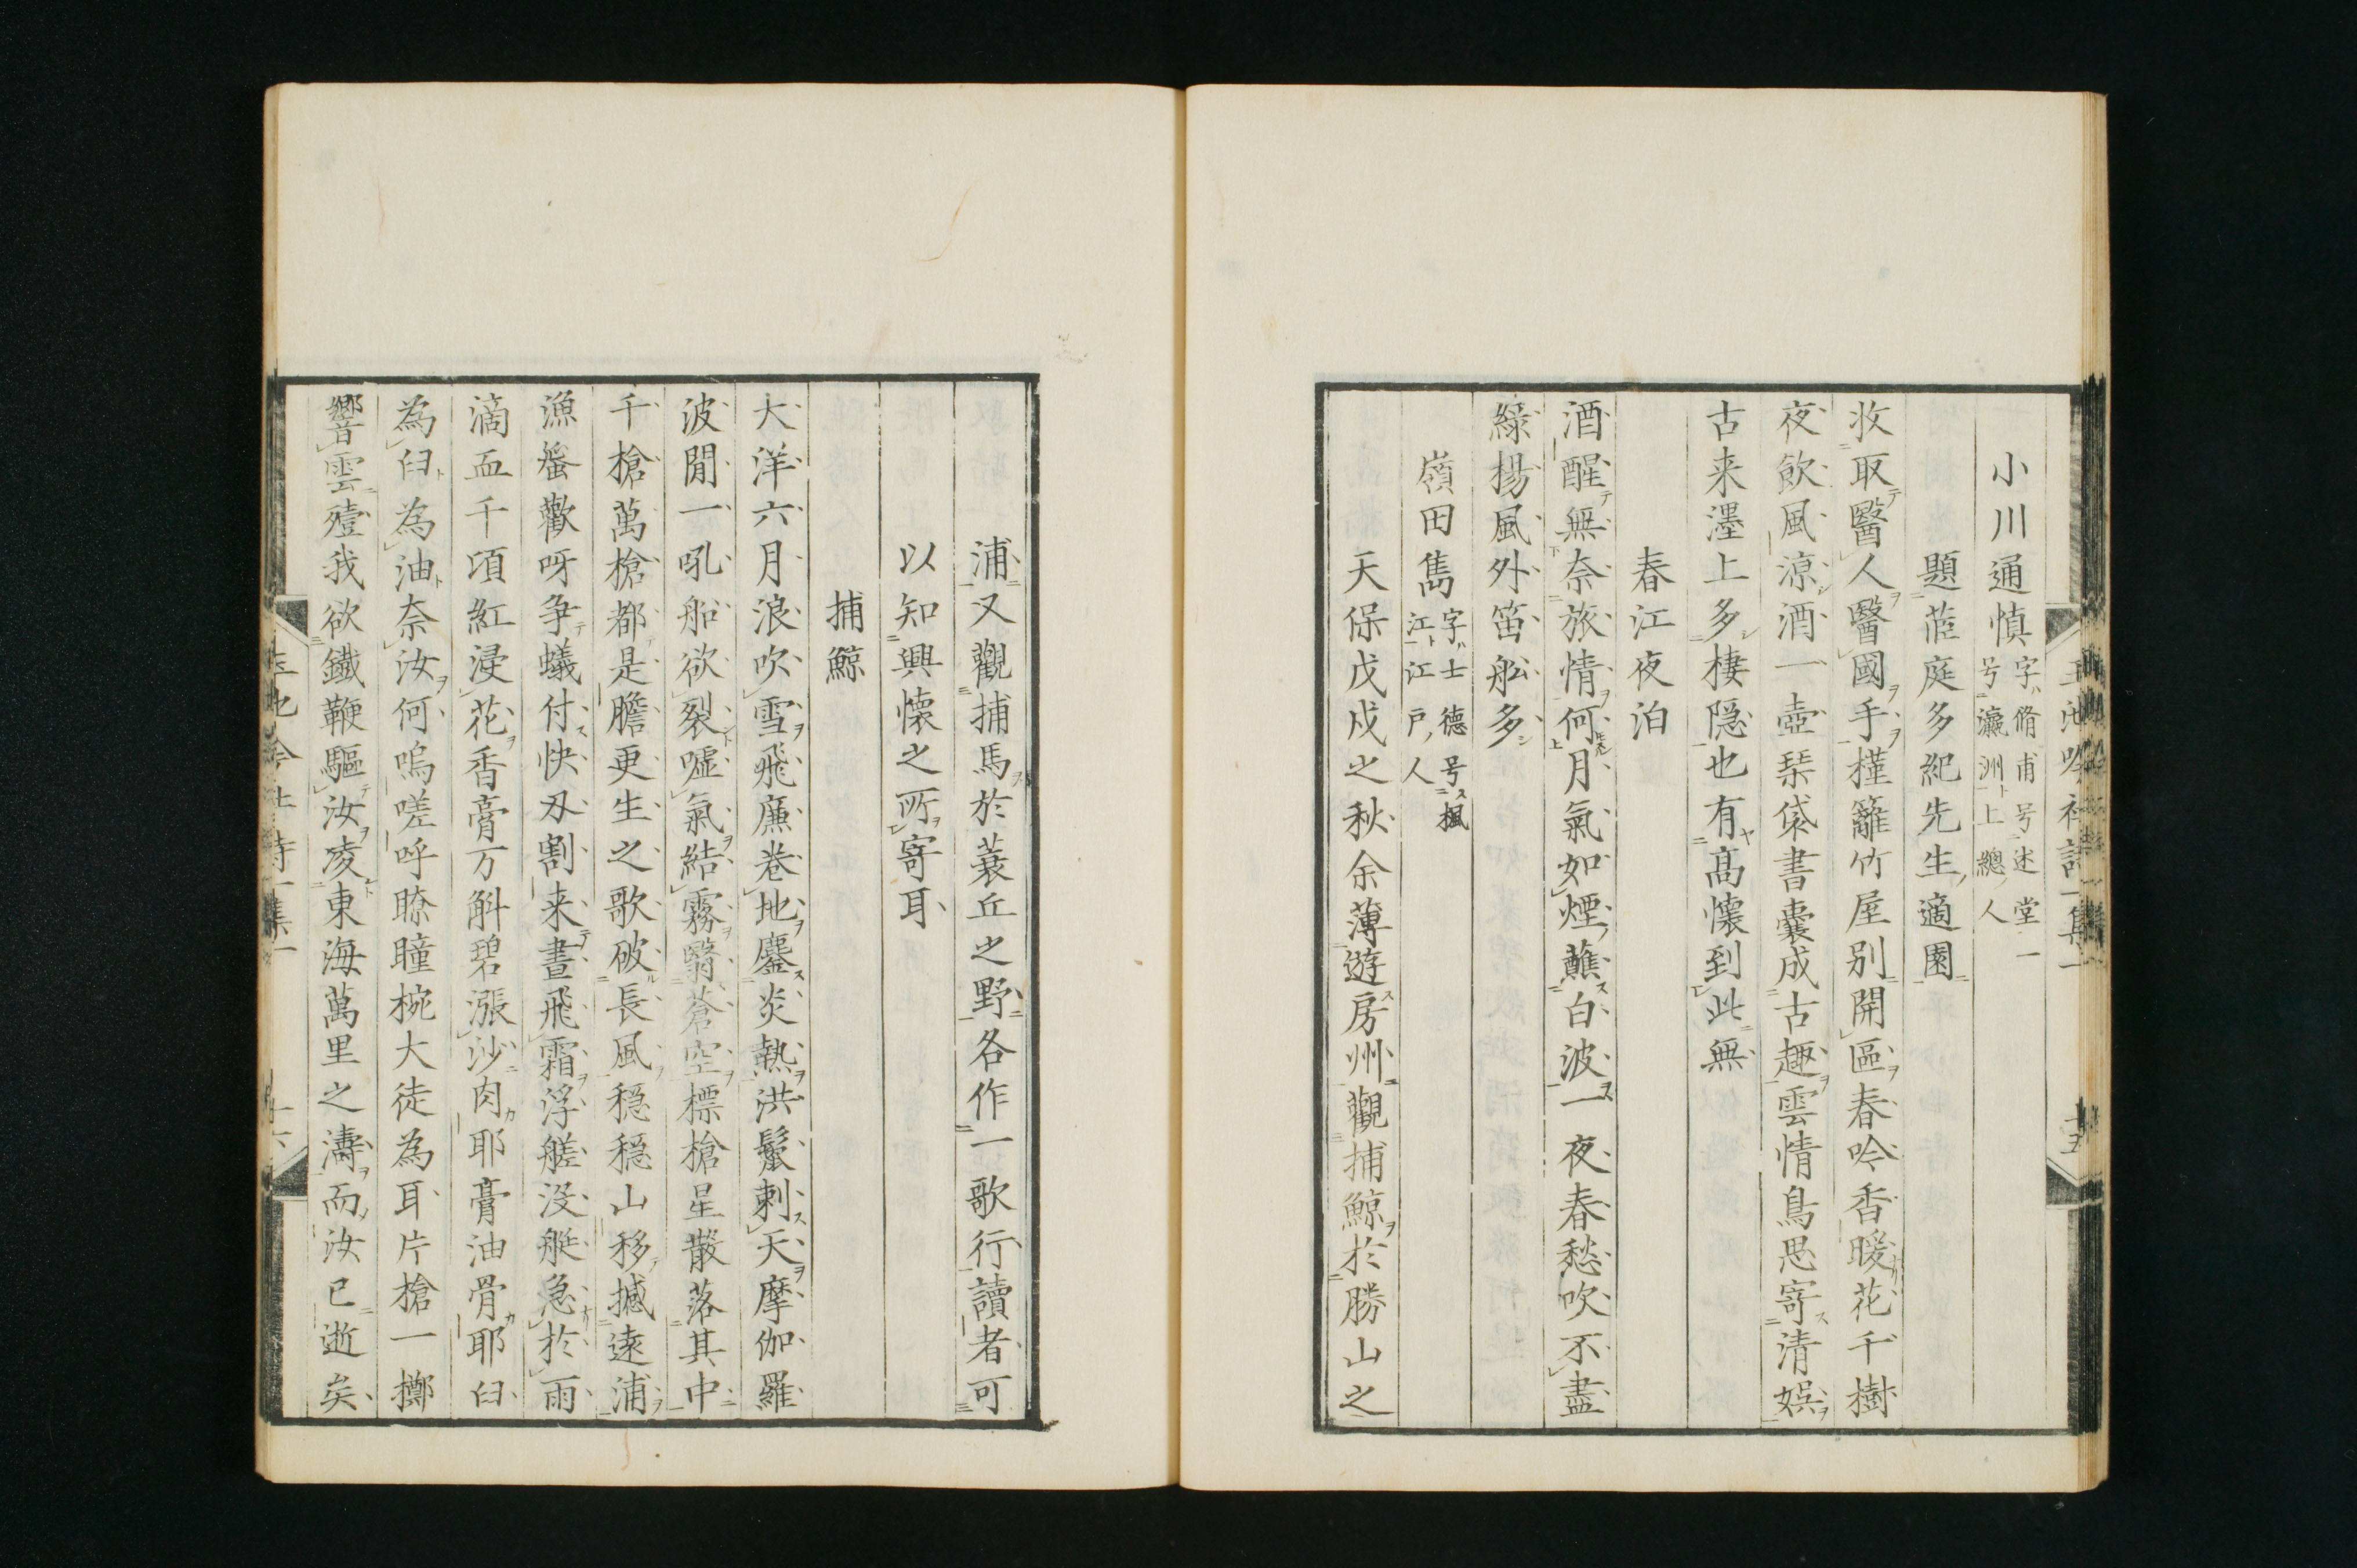 小川通慎 字脩甫号述堂一
号瀛洲上總人
題茝庭多紀先生適園
收取醫人醫國手槿籬竹屋別開區春吟香暖花千樹
夜飲風涼酒一壺琹帒書囊成古趣雲情鳥思寄清娯
古来墨上多棲隠也有髙懷到此無
春江夜泊
酒醒無奈旅情何月氣如煙蘸白波一夜春愁吹不盡
綠楊風外笛舩多
嶺田雋 字士德号楓
江江戸人
天保戊戌之秋余薄遊房州觀捕鯨於勝山之
浦又觀捕馬於蓑丘之野各作一歌行讀者可
以知興懷之所寄耳
捕鯨
大洋六月浪吹雪飛廉巻地鏖炎熱洪鬣刺天摩伽羅
波閒一吼船欲裂噓氣結霧翳蒼空標槍星散落其中
千槍萬槍都是膽更生之歌破長風穏穏山移撼遠浦
漁蜑歡呀争蟻付快刄割来晝飛霜浮艖没艇急於雨
滴血千頃紅浸花香膏万斛碧漲沙肉耶膏油骨耶臼
為臼為油奈汝何嗚嗟呼瞭瞳椀大徒為耳片槍一擲
響雲殪我欲鐵鞭驅汝凌東海萬里之濤而汝已逝矣